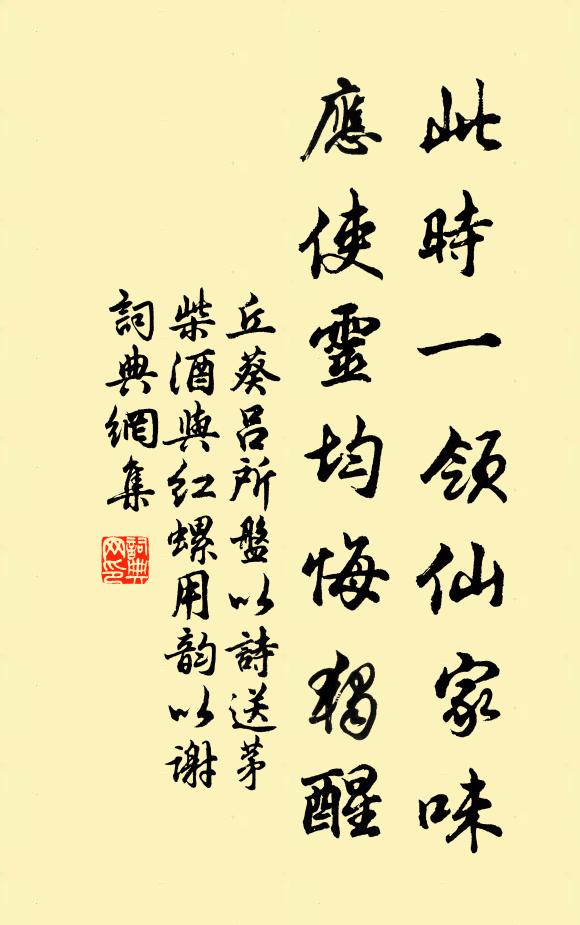 此時一領仙家味
應使靈均悔獨醒
丘葵呂所盤以詩送茅
柴酒與紅螺用韵以谢
詞典網集
詞典
网印